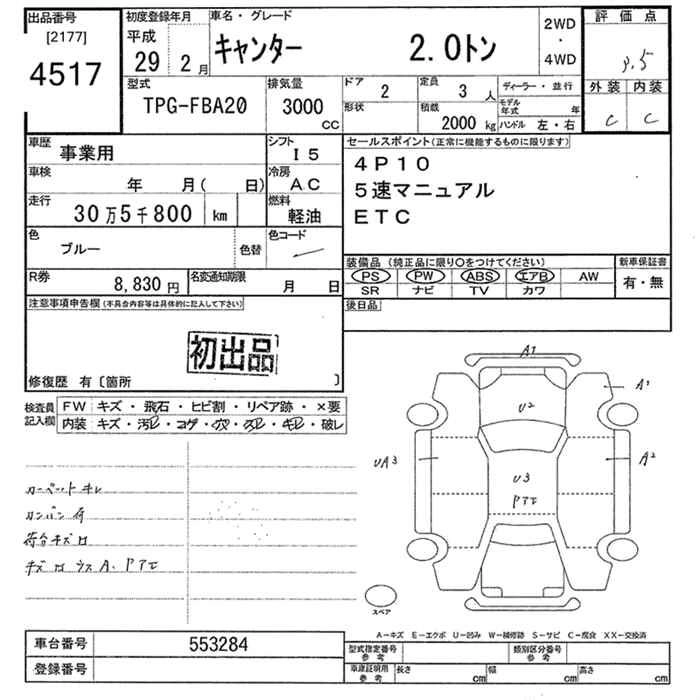 出品番号
[2177]
4517
初度登録年月
平成
29 2 月
車名・グレード
キャンター 2.0トン
2WD
・
4WD
評価点
3.5
外装 内装
C C
型式
TPG-FBA20
排気量
3000
CC
ドア
2
形状
定員
3 人
積載
2000 kg
ディーラー・並行
モデル年式 年
ハンドル 左・右
車歴
事業用
車検
年 月( 日)
走行
30万5千800 km
シフト
I5
冷房
AC
燃料
軽油
色
ブルー
色替
色コード
R券
8,830円
名変通知期限
月 日
注意事項申告欄(不具合内容等は具体的に記入して下さい)
初出品
修復歴 有〔箇所 〕
セールスポイント(正常に機能するものに限ります)
4P10
5速マニュアル
ETC
装備品(純正品に限り○をつけてください)
PS PW ABS エアB AW
SR ナビ TV カワ
新車保証書
有・無
後日品
検査員記入欄
FW キズ・飛石・ヒビ割・リペア跡・×要
内装 キズ・汚レ・コゲ・穴・スレ・キレ・破レ
カーペットキレ
カンバン有
荷台キズ凹
キズ凹ウスA、Pアエ
A1
A1
U2
UA3
A2
U3
Pアエ
スペア
A-キズ E-エクボ U-凹み W-補修跡 S-サビ C-腐食 XX-交換済
車台番号 553284
登録番号
型式指定番号
参考
類別区分番号
参考
車庫証明用
参考
長さ cm 幅 cm 高さ cm